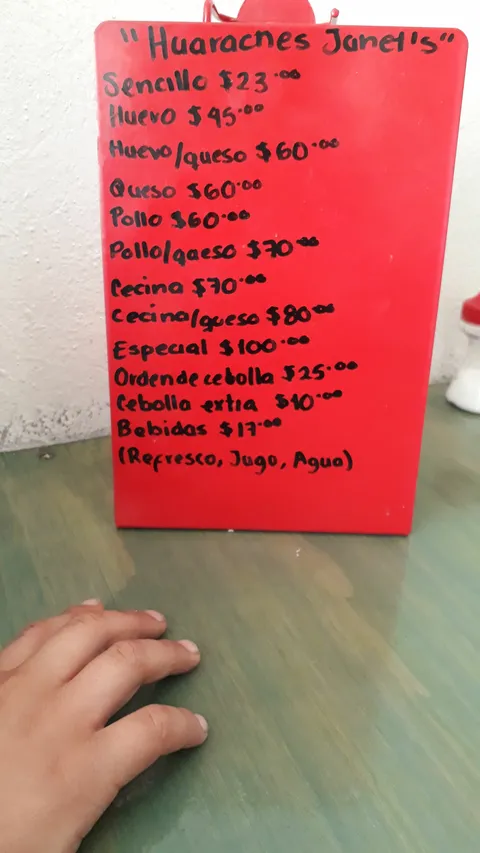 "Huaraches Janet's"
Sencillo $23.00
Huevo $45.00
Huevo/queso $60.00
Queso $60.00
Pollo $60.00
Pollo/queso $70.00
Cecina $70.00
Cecina/queso $80.00
Especial $100.00
Orden de cebolla $25.00
Cebolla extra $10.00
Bebidas $17.00
(Refresco, Jugo, Agua)